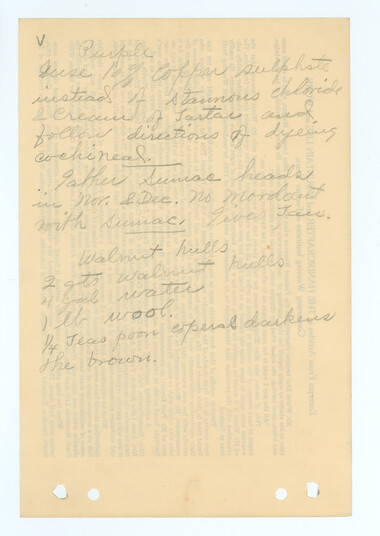 V
Purple
use 1 oz Copper Sulphate
instead of Stannous Chloride
& Cream of Tartar and
follow directions of dyeing
cochineal.
Gather Sumac heads
in Nov. & Dec. No Mordant
with Sumac. Gives Tan.
Walnut hulls
2 qts Walnut hulls
4 gal water
1 lb wool.
1/4 Teaspoon coperas darkens
the brown.